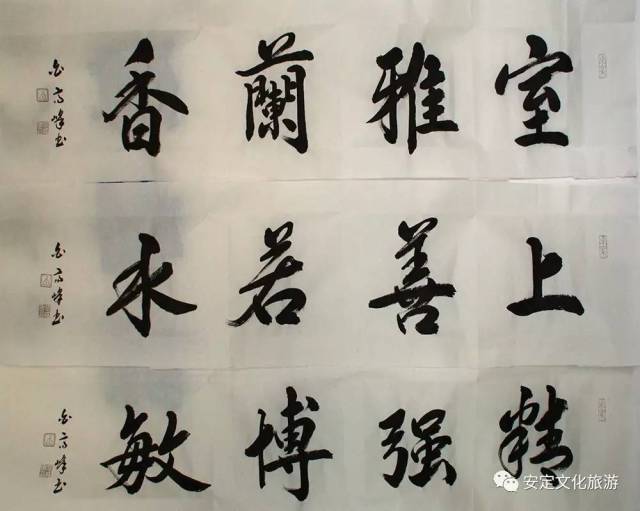 室雅蘭香
上善若水
精强博敏
安定文化旅游